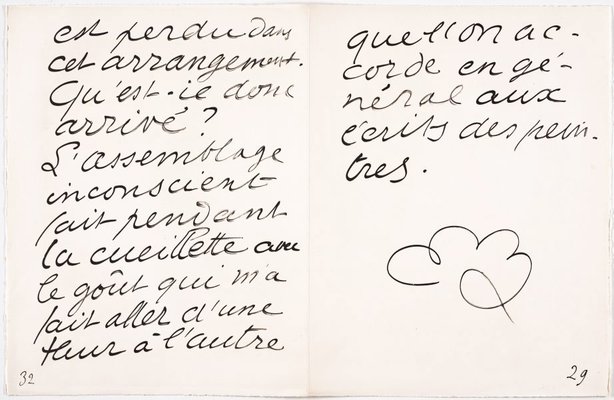 est perdu dans
cet arrangement.
Qu'est-ce donc
arrivé?
L'assemblage
inconscient
fait pendant
la cueillette avec
le goût qui m'a
fait aller d'une
fleur à l'autre
32
que l'on ac-
corde en gé-
néral aux
écrits des pein-
tres.
29